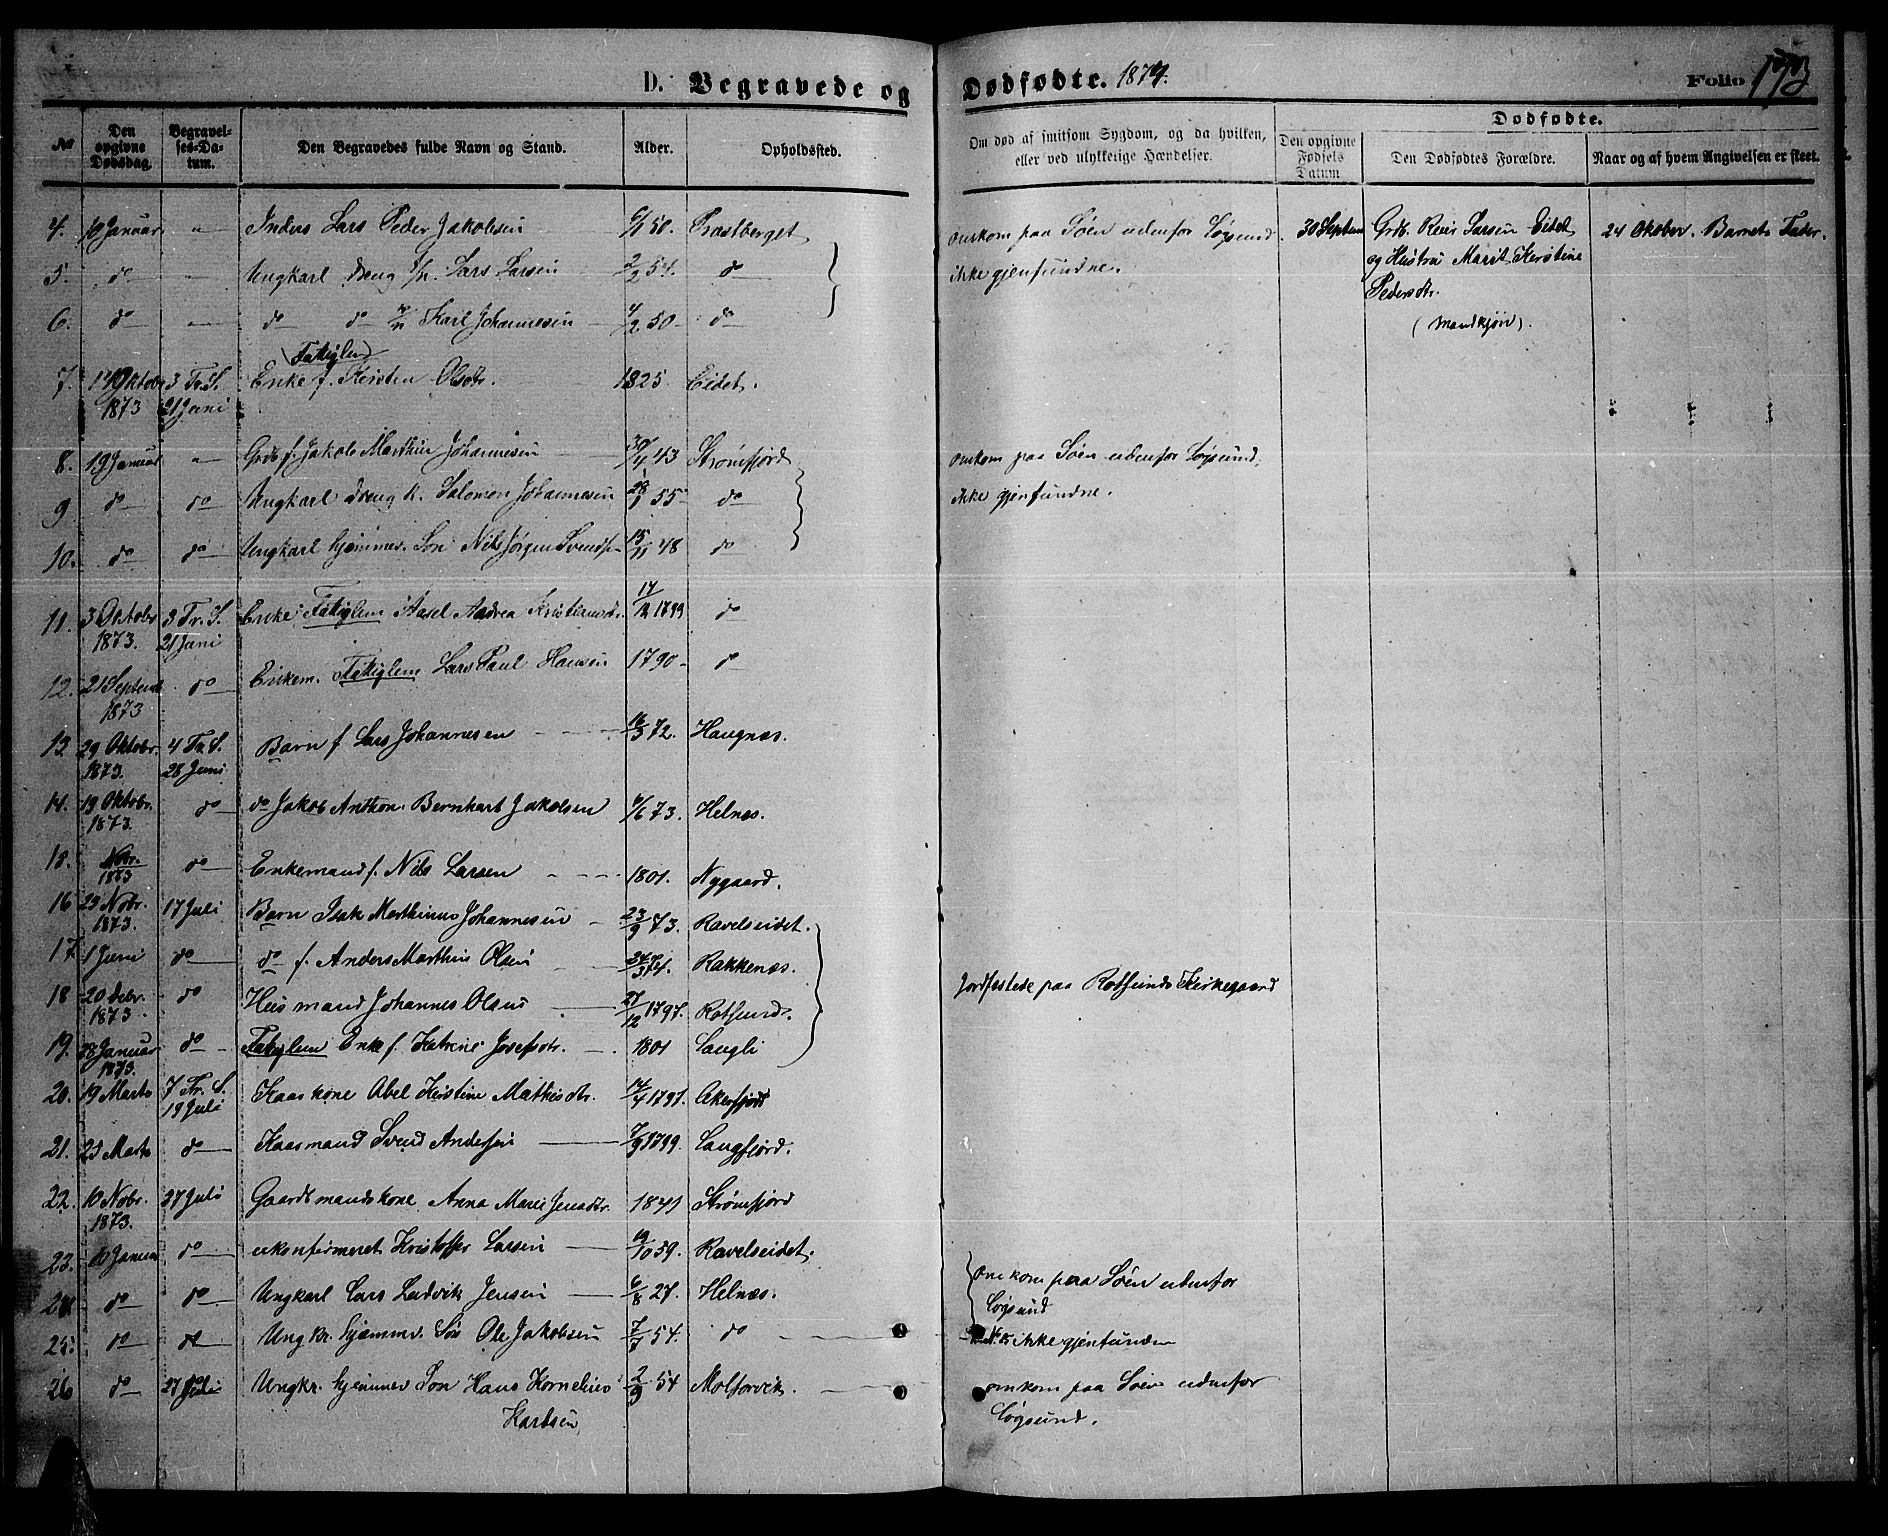 D. Begravede og Dødfødte. 1874. Folio 173
No
Den opgivne Dødsdag.
Begravelses-Datum.
Den Begravedes fulde Navn og Stand.
Alder.
Opholdssted.
Om død af smitsom Sygdom, og da hvilken, eller ved ulykkelige Hændelser.
Dødfødte.
Den opgivne Fødsels Datum
Den Dødfødtes Forældre.
Naar og af hvem Angivelsen er skeet.
4. 10 Januar " Inders Lars Peder Jakobsen 6/1 50. Præstberget omkom paa Søen udenfor Løgsund. 30 Septem Grdb. Reier Larsen Eidet 24 Oktober. Barnets Fader.
5. do " Ungkarl Dreng Lars Larsen 2/2 54. do ikke gjenfundne. og Hustru Marit Kirstine
Pedersdtr.
6. do do do Karl Johannesen 4/2 50 do (Mandkjøn).
Fattiglem
7. Oktobr 1873 3 Tr. S. 21 Juni Enke f. Kirsten Olsdtr. 1825. Eidet.
8. 19 Januar " Grdb f. Jakob Marthin Johannesen 30/4 43 Strømfjord omkom paa Søen udenfor Løgsund,
9 do do Ungkarl Dreng k. Salomon Johannesen 55 do ikke gjenfundne.
10. do do Ungkarl hjemmev. Søn Nils Jørgen Svends 15/11 48 do
11. 3 Oktobr 1873. 3 Tr. S. 21 Juni Enke Fattiglem Aasel Andrea Kristiansdtr. 17/12 1799 do
12. 21 Septemb 1873 do Enkem. Fattiglem Lars Paul Hansen 1790 do
13. 29 Oktobr. 1873. 4 Tr. S. 28 Juni Barn f Lars Johannesen 16/3 72. Haugnæs.
14. 19 Oktobr. 1873. do do Jakob Anthon Bernhart Jakobsen 6/6 73. Helnæs.
15. Nobr. 1873 do Enkemand f. Nils Larsen 1801. Nygaard.
16 25 Nobr. 1873. 17 Juli Barn Isak Marthinus Johannesen 23/9 73. Ravelseidet.
17. 1 Juni do do f. Anders Marthin Olsen 24/3 74. Rakkenæs.
18 20 Debr. 1873. do Husmand Johannes Olsen 27/12 1797. Rotsund. Jordfæstede paa Rotsunds Kirkegaard
19. 28 Januar 1873. do Fattiglem Enke f. Katrine Josefsdtr. 1801 Langli
20. 19 Marts 7 Tr. S. 19 Juli Kaarkone Abel Kirstine Mathisdtr. 14/4 1797. Akerfjord
21. 25 Marts do Kaarmand Svend Andersen 7/9 1799. Langfjord.
22. 10 Nobr. 1873. 27 Juli Gaardmandskone Anna Marie Jensdtr. 1841 Strømfjord
23. 10 Januar do ukonfirmeret Kristoffer Larsen 19/10 59. Ravelseidet. omkom paa Søen udenfor
24 do do Ungkarl Lars Ludvik Jensen 6/8 27. Helnæs. Løgsund
25. do do Ungkr. hjemmev. Søn Ole Jakobsen 7/7 54. do ikke gjenfunden
26 do 27 Juli Ungkr. hjemmev Søn Hans Kornelius 2/9 54 Molforvik. omkom paa Søen udenfor
Karlsen Løgsund.